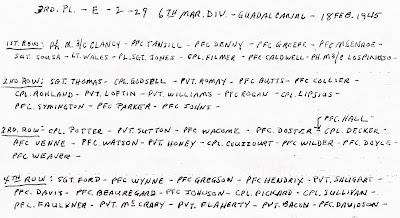 3RD. PL. - E - 2 - 29 6TH MAR. DIV. - GUADALCANAL - 18 FEB. 1945
1ST. ROW: PH. M. 3/C CLANCY - PFC TANSILL - PFC DENNY - PFC GREEFF - PFC MCENROE -
SGT. SOUSA - LT. WALES - PL. SGT. JONES - CPL. FILMER - PFC CALDWELL - PH. M 3/C LOSPINUSO -
2ND ROW: SGT. THOMAS - CPL. GODSELL - PVT. ROMAY - PFC BUTTS - PFC COLLIER
CPL. ROHLAND - PVT. LOFTIN - PVT. WILLIAMS - PFC ROGAN - CPL. LIPSIUS
PFC. SYMINGTON - PFC PARKER - PFC JOHNS -
PFC. HALL
3RD. ROW: CPL. POTTER - PVT. SUTTON - PFC WACOME - PFC. DOSTER - CPL. DECKER.
PFC VENNE - PFC. WATSON - PVT. HONEY - CPL. COUZZOURT - PFC WILDER - PFC. DOYLE -
PFC WEAVER -
4TH ROW: SGT. FORD - PFC WYNNE - PFC GREGSON - PFC HENDRIX - PVT. SHUGART -
PFC. DAVIS - PFC. BEAUREGARD - PFC JOHNSON - CPL. PICKARD - CPL. SULLIVAN
PFC. FAULKNER - PVT. MCCRARY - PVT. FLAHERTY - PVT. BACON - PFC. DAVIDSON -